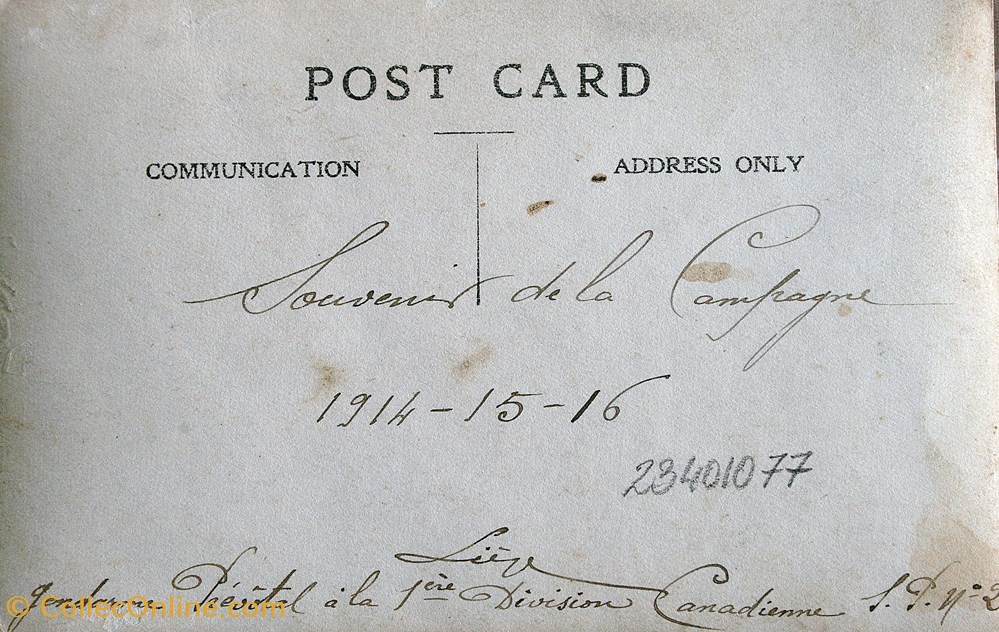 POST CARD
COMMUNICATION
ADDRESS ONLY
Souvenir de la Campagne
1914-15-16
23401077
Liége
Gendarme Prévôtal à la 1ère Division Canadienne S. P. Nº 2
© CollecOnline.com